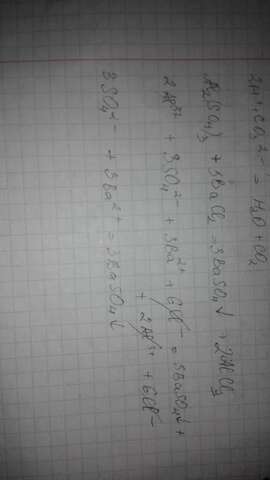 2H⁺ + CO₃²⁻ = H₂O + CO₂
Al₂(SO₄)₃ + 3BaCl₂ = 3BaSO₄↓ + 2AlCl₃
2Al³⁺ + 3SO₄²⁻ + 3Ba²⁺ + 6Cl⁻ = 3BaSO₄↓ +
+ 2Al³⁺ + 6Cl⁻
3SO₄²⁻ + 3Ba²⁺ = 3BaSO₄↓